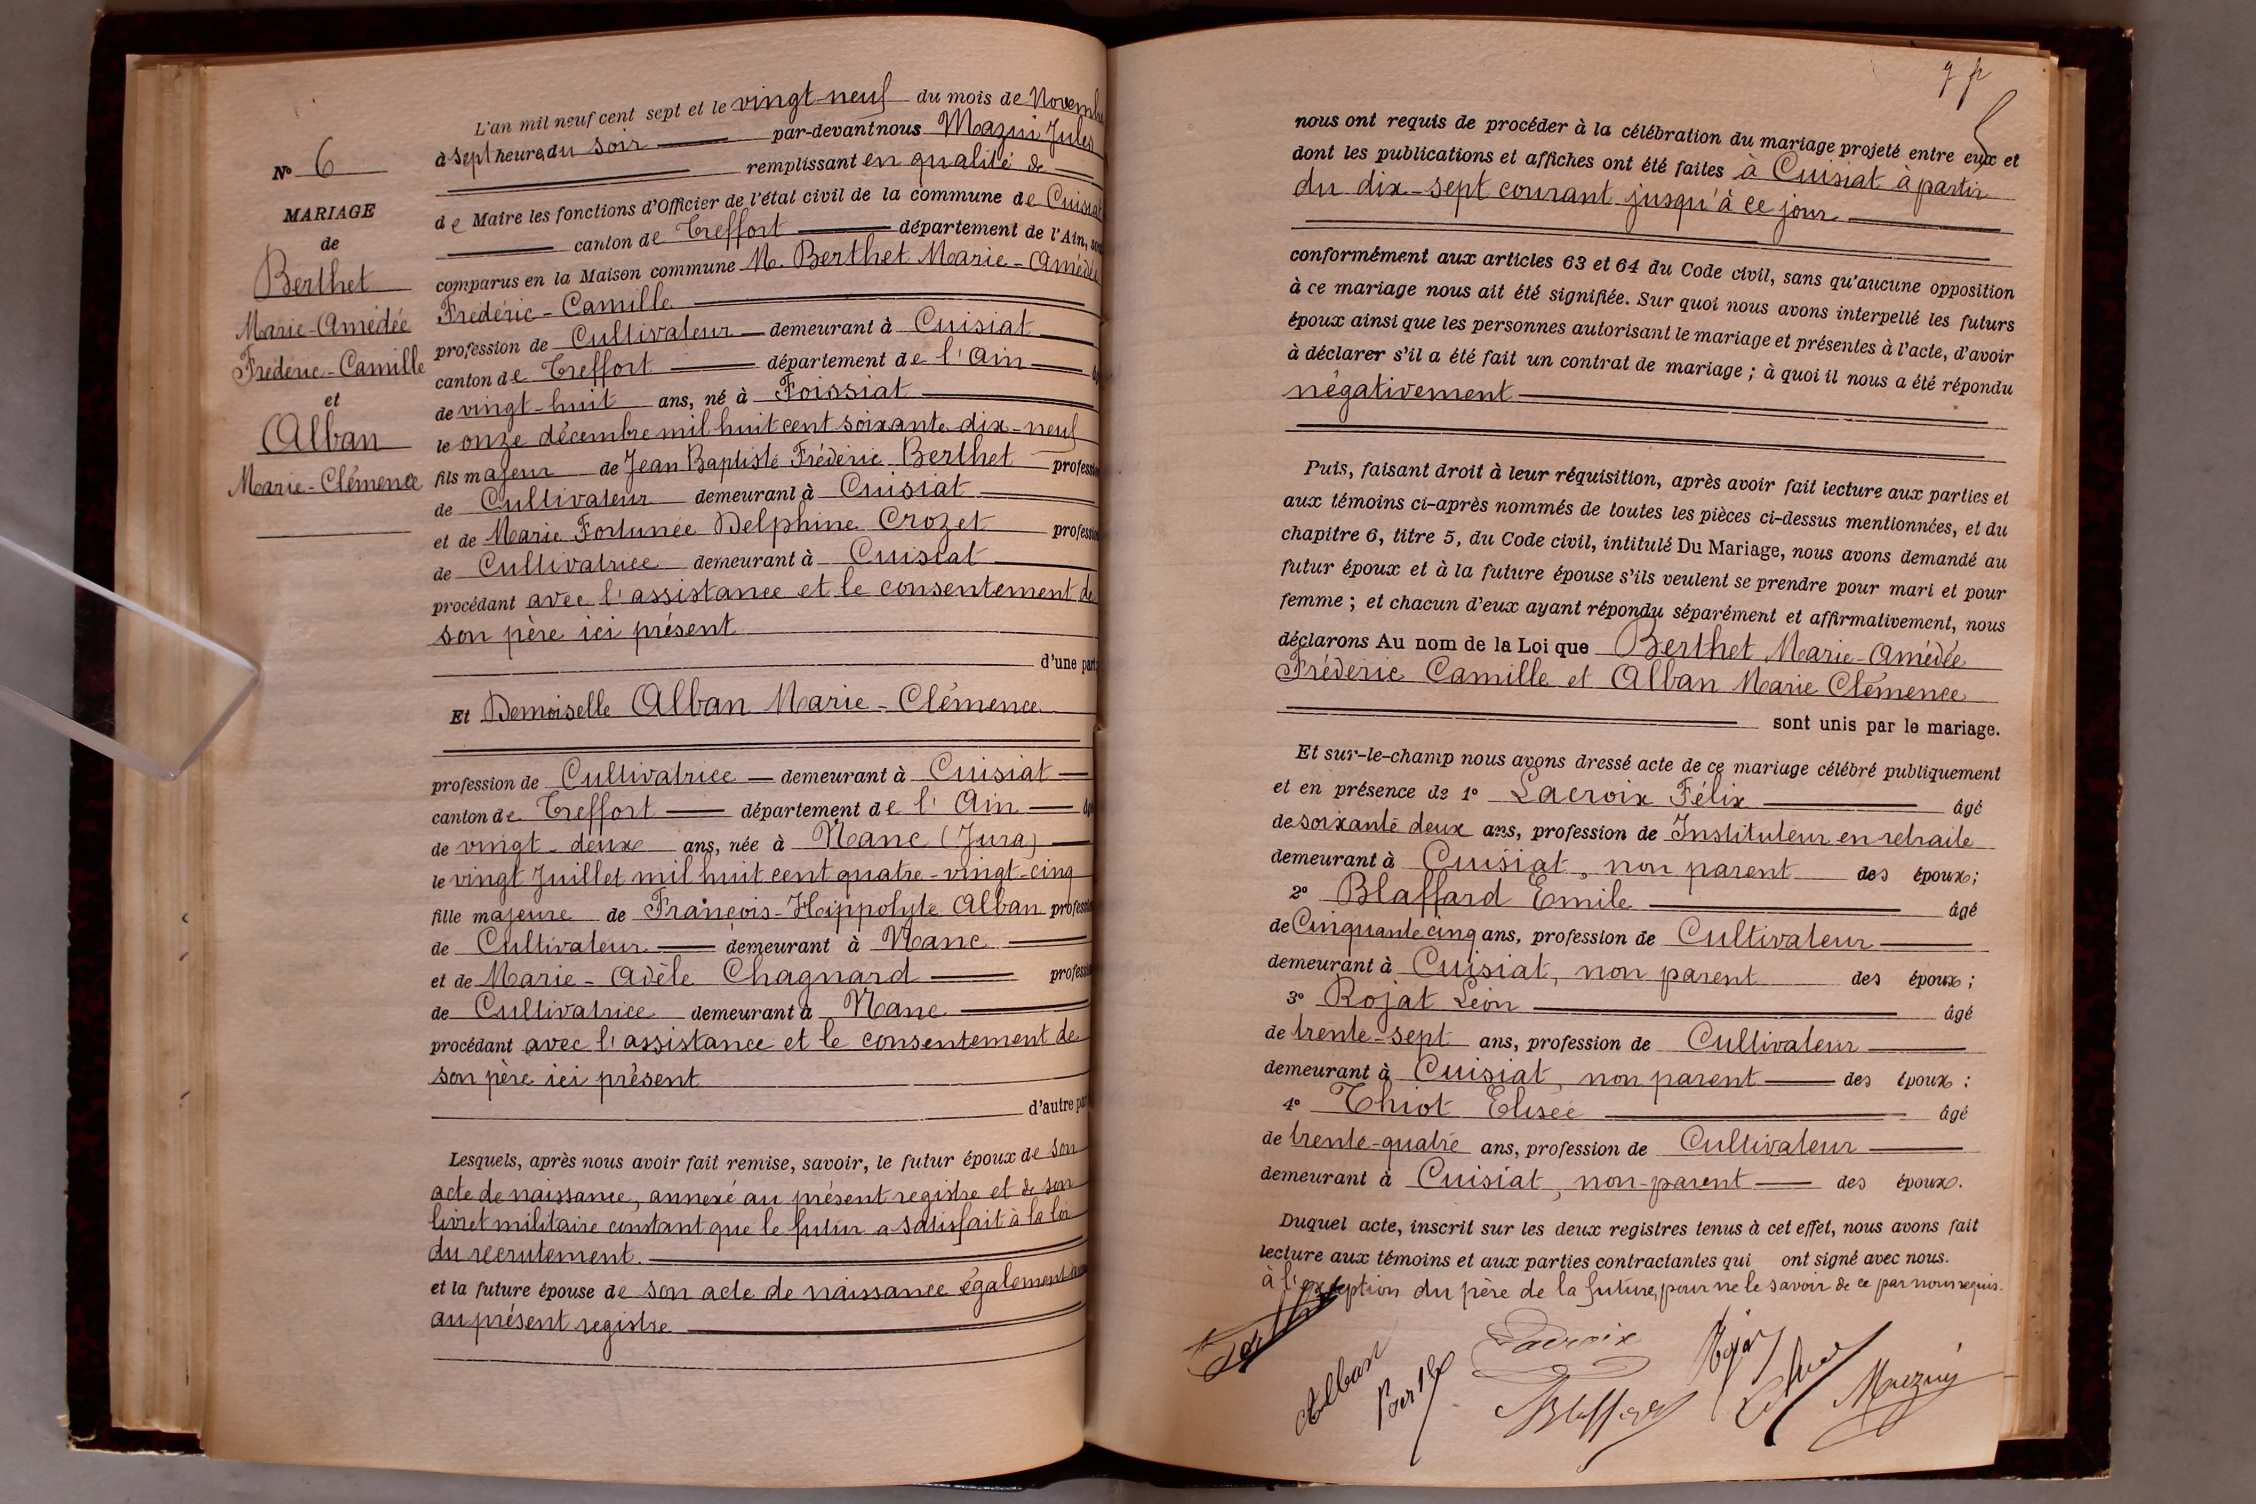 N° 6
MARIAGE
de
Berthet
Marie-Amédée
Frédéric-Camille
et
Alban
Marie-Clémence
L'an mil neuf cent sept et le vingt-neuf du mois de Novembre
à sept heures du soir par-devant nous Mazuir Jules
remplissant en qualité de
de Maire les fonctions d'Officier de l'état civil de la commune de Cuisiat
canton de Treffort département de l'Ain, sont
comparus en la Maison commune M. Berthet Marie-Amédée
Frédéric-Camille
profession de Cultivateur demeurant à Cuisiat
canton de Treffort département de l'Ain âgé
de vingt-huit ans, né à Foissiat
le onze décembre mil huit cent soixante dix-neuf
fils majeur de Jean Baptiste Frédéric Berthet profession
de Cultivateur demeurant à Cuisiat
et de Marie Fortunée Delphine Crozet profession
de Cultivatrice demeurant à Cuisiat
procédant avec l'assistance et le consentement de
son père ici présent
d'une part;
Et Demoiselle Alban Marie-Clémence
profession de Cultivatrice demeurant à Cuisiat
canton de Treffort département de l'Ain âgé
de vingt-deux ans, née à Nanc (Jura)
le vingt Juillet mil huit cent quatre-vingt-cinq
fille majeure de François-Hippolyte Alban profession
de Cultivateur demeurant à Nanc
et de Marie-Adèle Chagnard profession
de Cultivatrice demeurant à Nanc
procédant avec l'assistance et le consentement de
son père ici présent
d'autre part
Lesquels, après nous avoir fait remise, savoir, le futur époux de son
acte de naissance, annexé au présent registre et de son
livret militaire constant que le futur a satisfait à la loi
du recrutement.
et la future épouse de son acte de naissance également
au présent registre
nous ont requis de procéder à la célébration du mariage projeté entre eux et
dont les publications et affiches ont été faites à Cuisiat à partir
du dix-sept courant jusqu'à ce jour
conformément aux articles 63 et 64 du Code civil, sans qu'aucune opposition
à ce mariage nous ait été signifiée. Sur quoi nous avons interpellé les futurs
époux ainsi que les personnes autorisant le mariage et présentes à l'acte, d'avoir
à déclarer s'il a été fait un contrat de mariage ; à quoi il nous a été répondu
négativement
Puis, faisant droit à leur réquisition, après avoir fait lecture aux parties et
aux témoins ci-après nommés de toutes les pièces ci-dessus mentionnées, et du
chapitre 6, titre 5, du Code civil, intitulé Du Mariage, nous avons demandé au
futur époux et à la future épouse s'ils veulent se prendre pour mari et pour
femme ; et chacun d'eux ayant répondu séparément et affirmativement, nous
déclarons Au nom de la Loi que Berthet Marie-Amédée
Frédéric Camille et Alban Marie Clémence
sont unis par le mariage.
Et sur-le-champ nous avons dressé acte de ce mariage célébré publiquement
et en présence de 1° Lacroix Félix âgé
de soixante deux ans, profession de Instituteur en retraite
demeurant à Cuisiat, non parent des époux;
2° Blaffard Emile âgé
de Cinquante cinq ans, profession de Cultivateur
demeurant à Cuisiat, non parent des époux;
3° Rojat Léon âgé
de trente-sept ans, profession de Cultivateur
demeurant à Cuisiat, non parent des époux;
4° Thiot Elisée âgé
de trente-quatre ans, profession de Cultivateur
demeurant à Cuisiat, non-parent des époux.
Duquel acte, inscrit sur les deux registres tenus à cet effet, nous avons fait
lecture aux témoins et aux parties contractantes qui ont signé avec nous.
à l'exception du père de la future, pour ne le savoir de ce par nous requis.
Alban
Lacroix
Rojat
Blaffard